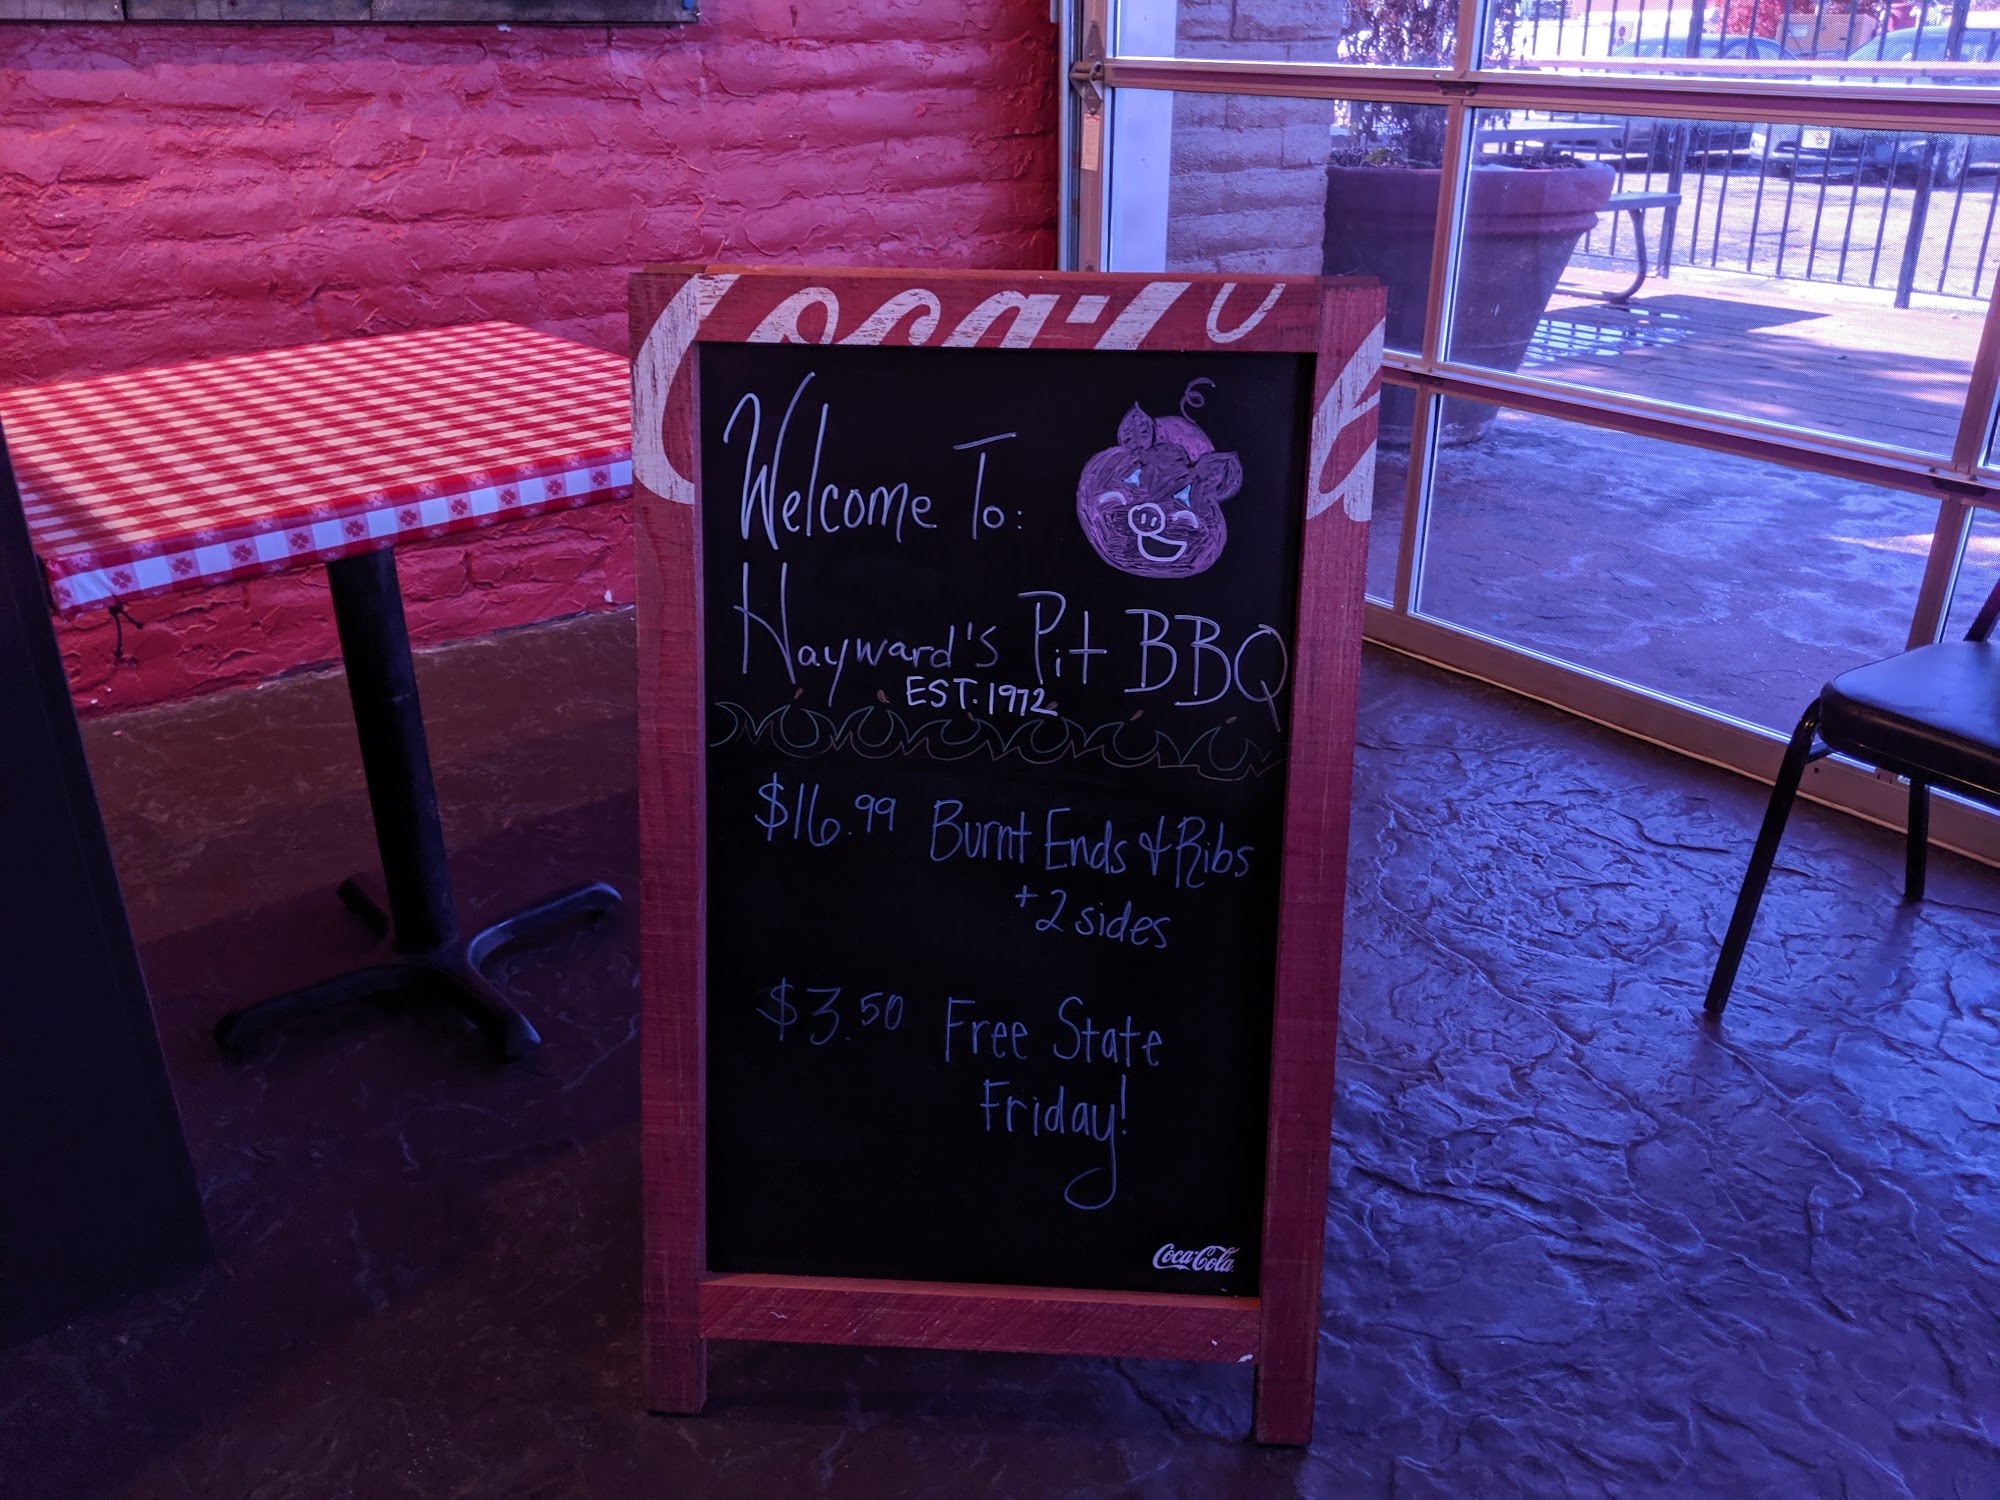 Coca-Co
Welcome To:
Hayward's Pit BBQ
EST. 1972
$16.99 Burnt Ends & Ribs
+2 sides
$3.50 Free State
Friday!
Coca-Cola